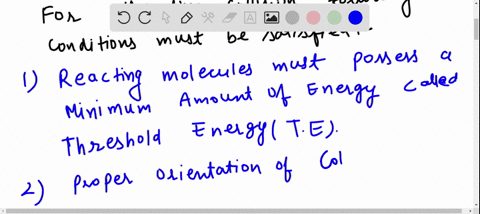 For
conditions must be satisfied.
1) Reacting molecules must possess a
Minimum Amount of Energy called
Threshold Energy (T.E).
2) Proper orientation of Col